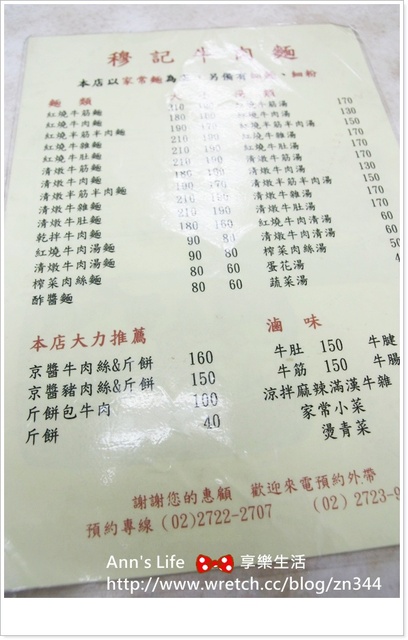 穆記牛肉麵
本店以家常麵為主，另備有細麵、細粉
麵 類
紅燒牛筋麵 210 180
紅燒牛肉麵 180 160
紅燒半筋半肉麵 190 170
紅燒牛雜麵 210 190
紅燒牛肚麵 210 190
清燉牛筋麵 210 180
清燉牛肉麵 180 160
清燉半筋半肉麵 190 170
清燉牛雜麵 210 190
清燉牛肚麵 210 190
乾拌牛肉麵 180 160
紅燒牛肉湯麵 90 80
清燉牛肉湯麵 90 80
榨菜肉絲麵 80 60
酢醬麵 80 60
湯 類
紅燒牛筋湯 170
紅燒牛肉湯 130
紅燒半筋半肉湯 150
紅燒牛雜湯 170
紅燒牛肚湯 170
清燉牛筋湯 170
清燉牛肉湯
清燉半筋半肉湯 150
清燉牛雜湯 170
清燉牛肚湯 170
紅燒牛肉清湯
清燉牛肉清湯 50
榨菜肉絲湯 50
蛋花湯
蔬菜湯
本店大力推薦
京醬牛肉絲&斤餅 160
京醬豬肉絲&斤餅 150
斤餅包牛肉 100
斤餅 40
滷 味
牛肚 150 牛腱
牛筋 150 牛腸
涼拌麻辣滿漢牛雜
家常小菜
燙青菜
謝謝您的惠顧 歡迎來電預約外帶
預約專線 (02)2722-2707 (02)2723-9
Ann's Life 享樂生活
http://www.wretch.cc/blog/zn344